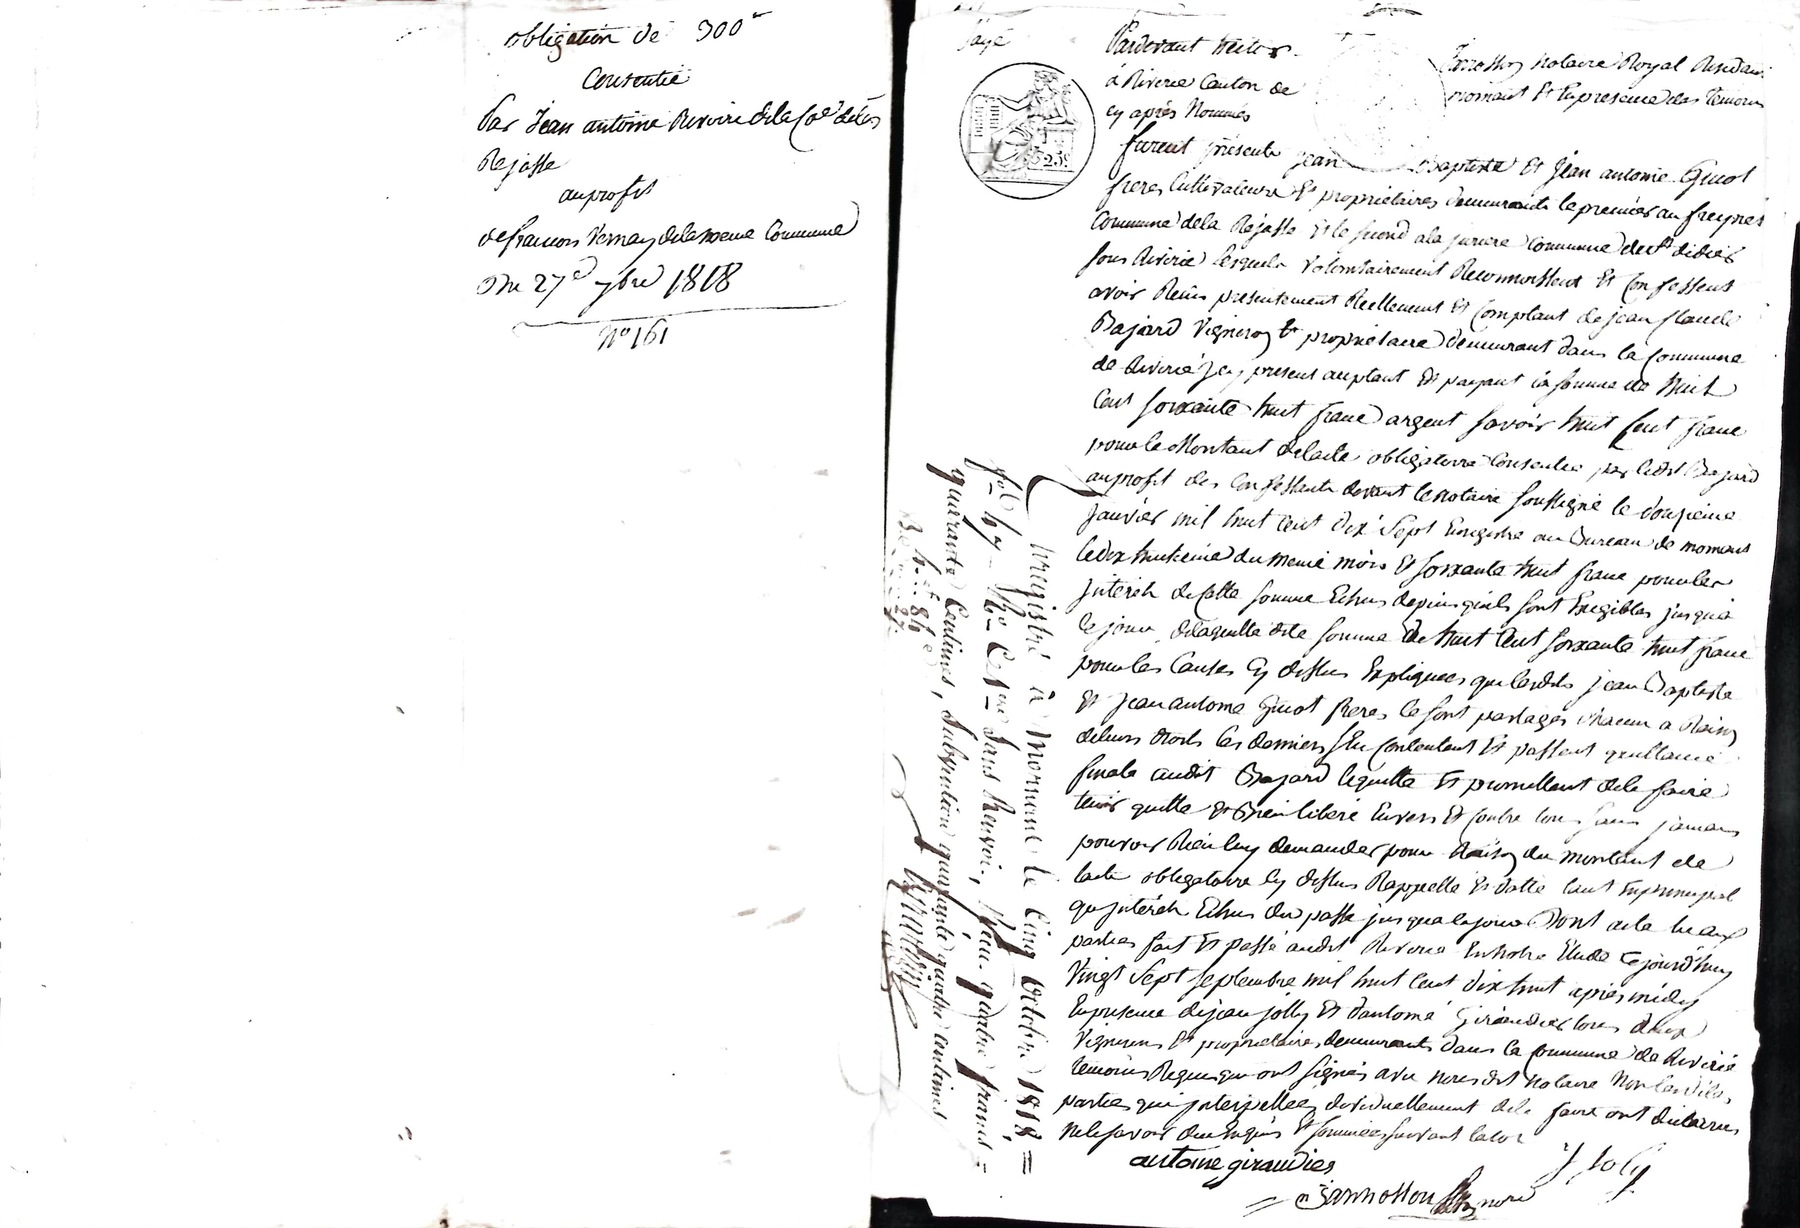 obligation de 300f
Consentie
Par Jean antoine Rivoire de la Coe de Les
Rejasse
au profit
de francois Vernay de la meme Commune
Du 27e 7bre 1818
N° 161
Pardevant
Notaire Royal Residant
à Riverie Canton de Mornant Et En presence des Temoins
cy après Nommés
furent présents jean Baptiste Et Jean antoine Guiot
freres Cultivateurs Et propriétaires demeurants le premier au freynés
Commune de la Rejasse Et le second a la jurere Commune de st didier
sous Riverie lesquels volontairement Reconnoissent Et Confessent
avoir Reçus presentement Reellement Et Comptant de jean Claude
Bajard Vigneron Et propriétaire demeurant dans la Commune
de Riverie jcy present acceptant Et payant la somme de huit
Cent soixante huit franc argent savoir huit Cent franc
pour le Montant de lacte obligatoire Consentie par ledit Bajard
au profit des Confessants devant le notaire soussigné le douzieme
janvier mil huit Cent dix sept Enregistré au Bureau de mornant
le dix huitieme du meme mois Et soixante huit franc pour les
jnterets de Cette somme Echus depuis quils sont Exigibles jusqua
Ce jour, de laquelle dite somme de huit Cent soixante huit franc
pour les Causes Cy dessus Expliquees que lesdits jean Baptiste
Et jean antoine Guiot freres se sont partagés chacun a Raison
de leurs droits les derniers sEn Contentent Et passent quittance
finale audit Bajard lequitte Et promettent de le faire
tenir quitte Et Bien libéré Envers Et Contre tous sans jamais
pouvoir Rien luy demander pour Raison du montant de
lacte obligatoire Cy dessus Rappellé Et datte tant En principal
qu jnterets Echus du passé jusqua ce jour Dont acte
parties fait Et passé audit Riverie En notre Etude Cejourd'huy
Vingt Sept septembre mil huit Cent dix huit après midy
En presence de jean jolly Et d'antoine Giraudier tous deux
Vignerons Et proprietaires demeurants dans la Commune de Riverie
temoins Requis qui ont signés avec nous dit notaire Non lesdites
parties qui jnterpellées de le faire ont déclarées
ne le savoir de ce Enquis Et sommées suivant la loi
antoine giraudier
J Joly
Jannosson nore
Enregistré à Mornant le Cinq Octobre 1818
Sans Renvoi, Reçu quatre francs
quarante Centimes, Subvention quarante quatre centimes